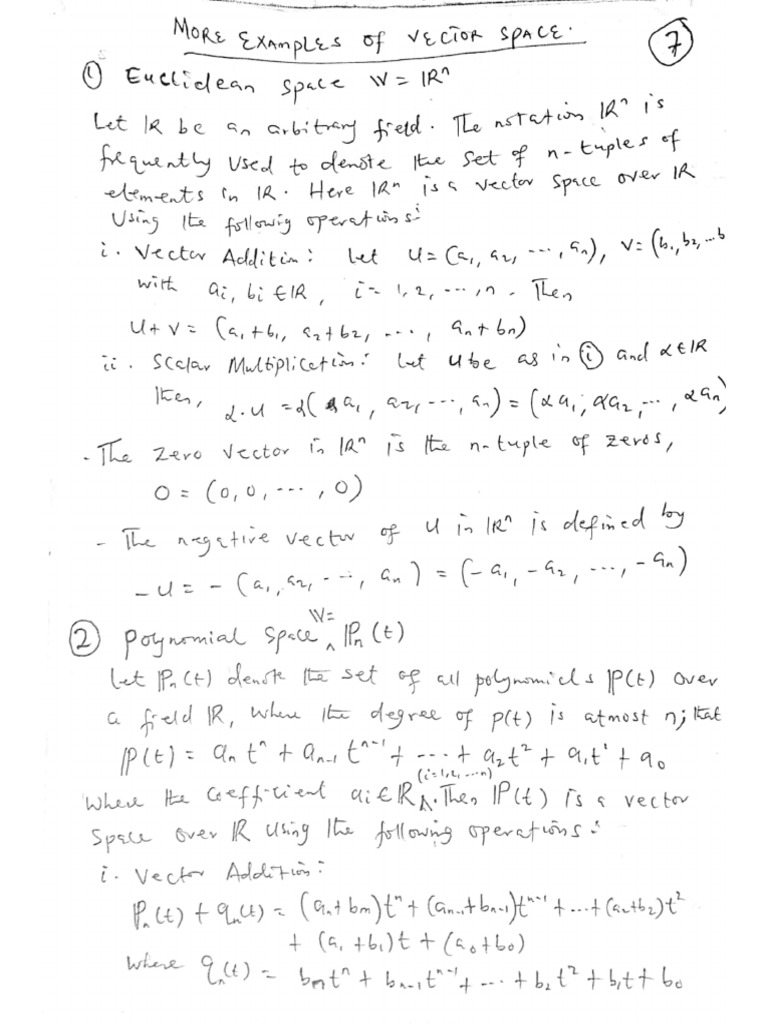 MORE EXAMPLES OF VECTOR SPACE.
7
① Euclidean space W = ℝⁿ
Let ℝ be an arbitrary field. The notation ℝⁿ is
frequently used to denote the set of n-tuples of
elements in ℝ. Here ℝⁿ is a vector space over ℝ
Using the followig operations:
i. Vector Addition: Let u = (a₁, a₂, ..., aₙ), v = (b₁, b₂, ... b
with aᵢ, bᵢ ∈ ℝ, i = 1, 2, ..., n. Then
u + v = (a₁ + b₁, a₂ + b₂, ..., aₙ + bₙ)
ii. Scalar Multiplication: Let u be as in ⓘ and α ∈ ℝ
then, α.u = α(a₁, a₂, ..., aₙ) = (αa₁, αa₂, ..., αaₙ)
- The zero vector in ℝⁿ is the n-tuple of zeros,
0 = (0, 0, ..., 0)
- The negative vector of u in ℝⁿ is defined by
-u = -(a₁, a₂, ..., aₙ) = (-a₁, -a₂, ..., -aₙ)
② Polynomial Space W = ℙₙ(t)
Let ℙₙ(t) denote the set of all polynomials ℙ(t) over
a field ℝ, where the degree of p(t) is atmost n; that
ℙ(t) = aₙtⁿ + aₙ₋₁tⁿ⁻¹ + ... + a₂t² + a₁t¹ + a₀
where the coefficient aᵢ ∈ ℝ (i = 1, 2, ... n). Then ℙ(t) is a vector
space over ℝ using the following operations:
i. Vector Addition:
ℙₙ(t) + qₙ(t) = (aₙ + bₘ)tⁿ + (aₙ₋₁ + bₙ₋₁)tⁿ⁻¹ + ... + (a₂ + b₂)t²
+ (a₁ + b₁)t + (a₀ + b₀)
where qₙ(t) = bₙtⁿ + bₙ₋₁tⁿ⁻¹ + ... + b₂t² + b₁t + b₀